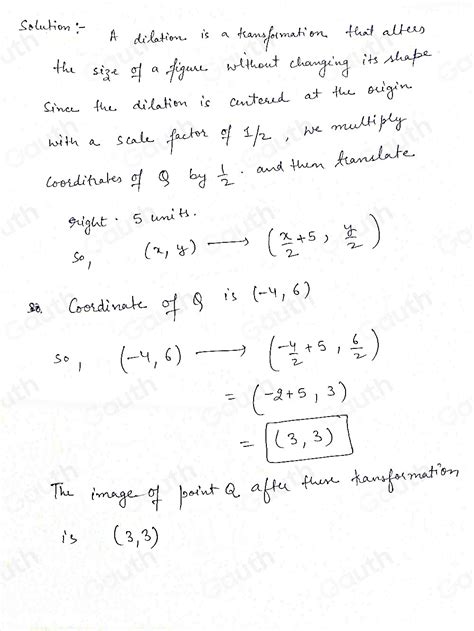 Solution:-
A dilation is a transformation that alters
the size of a figure without changing its shape
Since the dilation is centered at the origin
with a scale factor of 1/2, we multiply
coordinates of Q by 1/2. and then translate
right. 5 units.
So, (x, y) → (x/2 + 5, y/2)
Coordinate of Q is (-4, 6)
so, (-4, 6) → (-4/2 + 5, 6/2)
= (-2+5, 3)
= (3, 3)
The image of point Q after these transformation
is (3,3)